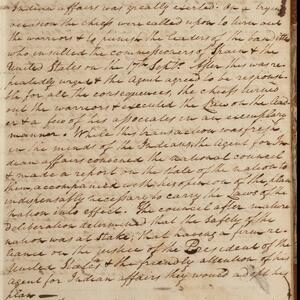 Indian affairs was greatly exerted. On a
occasion the chiefs were called upon to turn out
the warriors & to punish the leaders of the banditti
who insulted the commissioners of Spain & the
United States on the 17th Septr. After this was re
peatedly urged & the Agent agreed to be respons
ible for all the consequences, the chiefs turned
out the warriors & executed the Law on the lead
er & a few of his associates in an exemplary
manner. While this transaction was fresh
in the minds of the Indians, the Agent for In
dian affairs convened the national council
& made a report on the state of the nation to
them accompanied with his opinion of the plan
indispensably necessary to carry the laws of the
nation into effect. The council after mature
deliberation determined that the safety of the
nation was at stake; that having a firm re
liance on the justice of the President of the
United States & the friendly attention of his
agent for Indian affairs they would adopt his
plan—